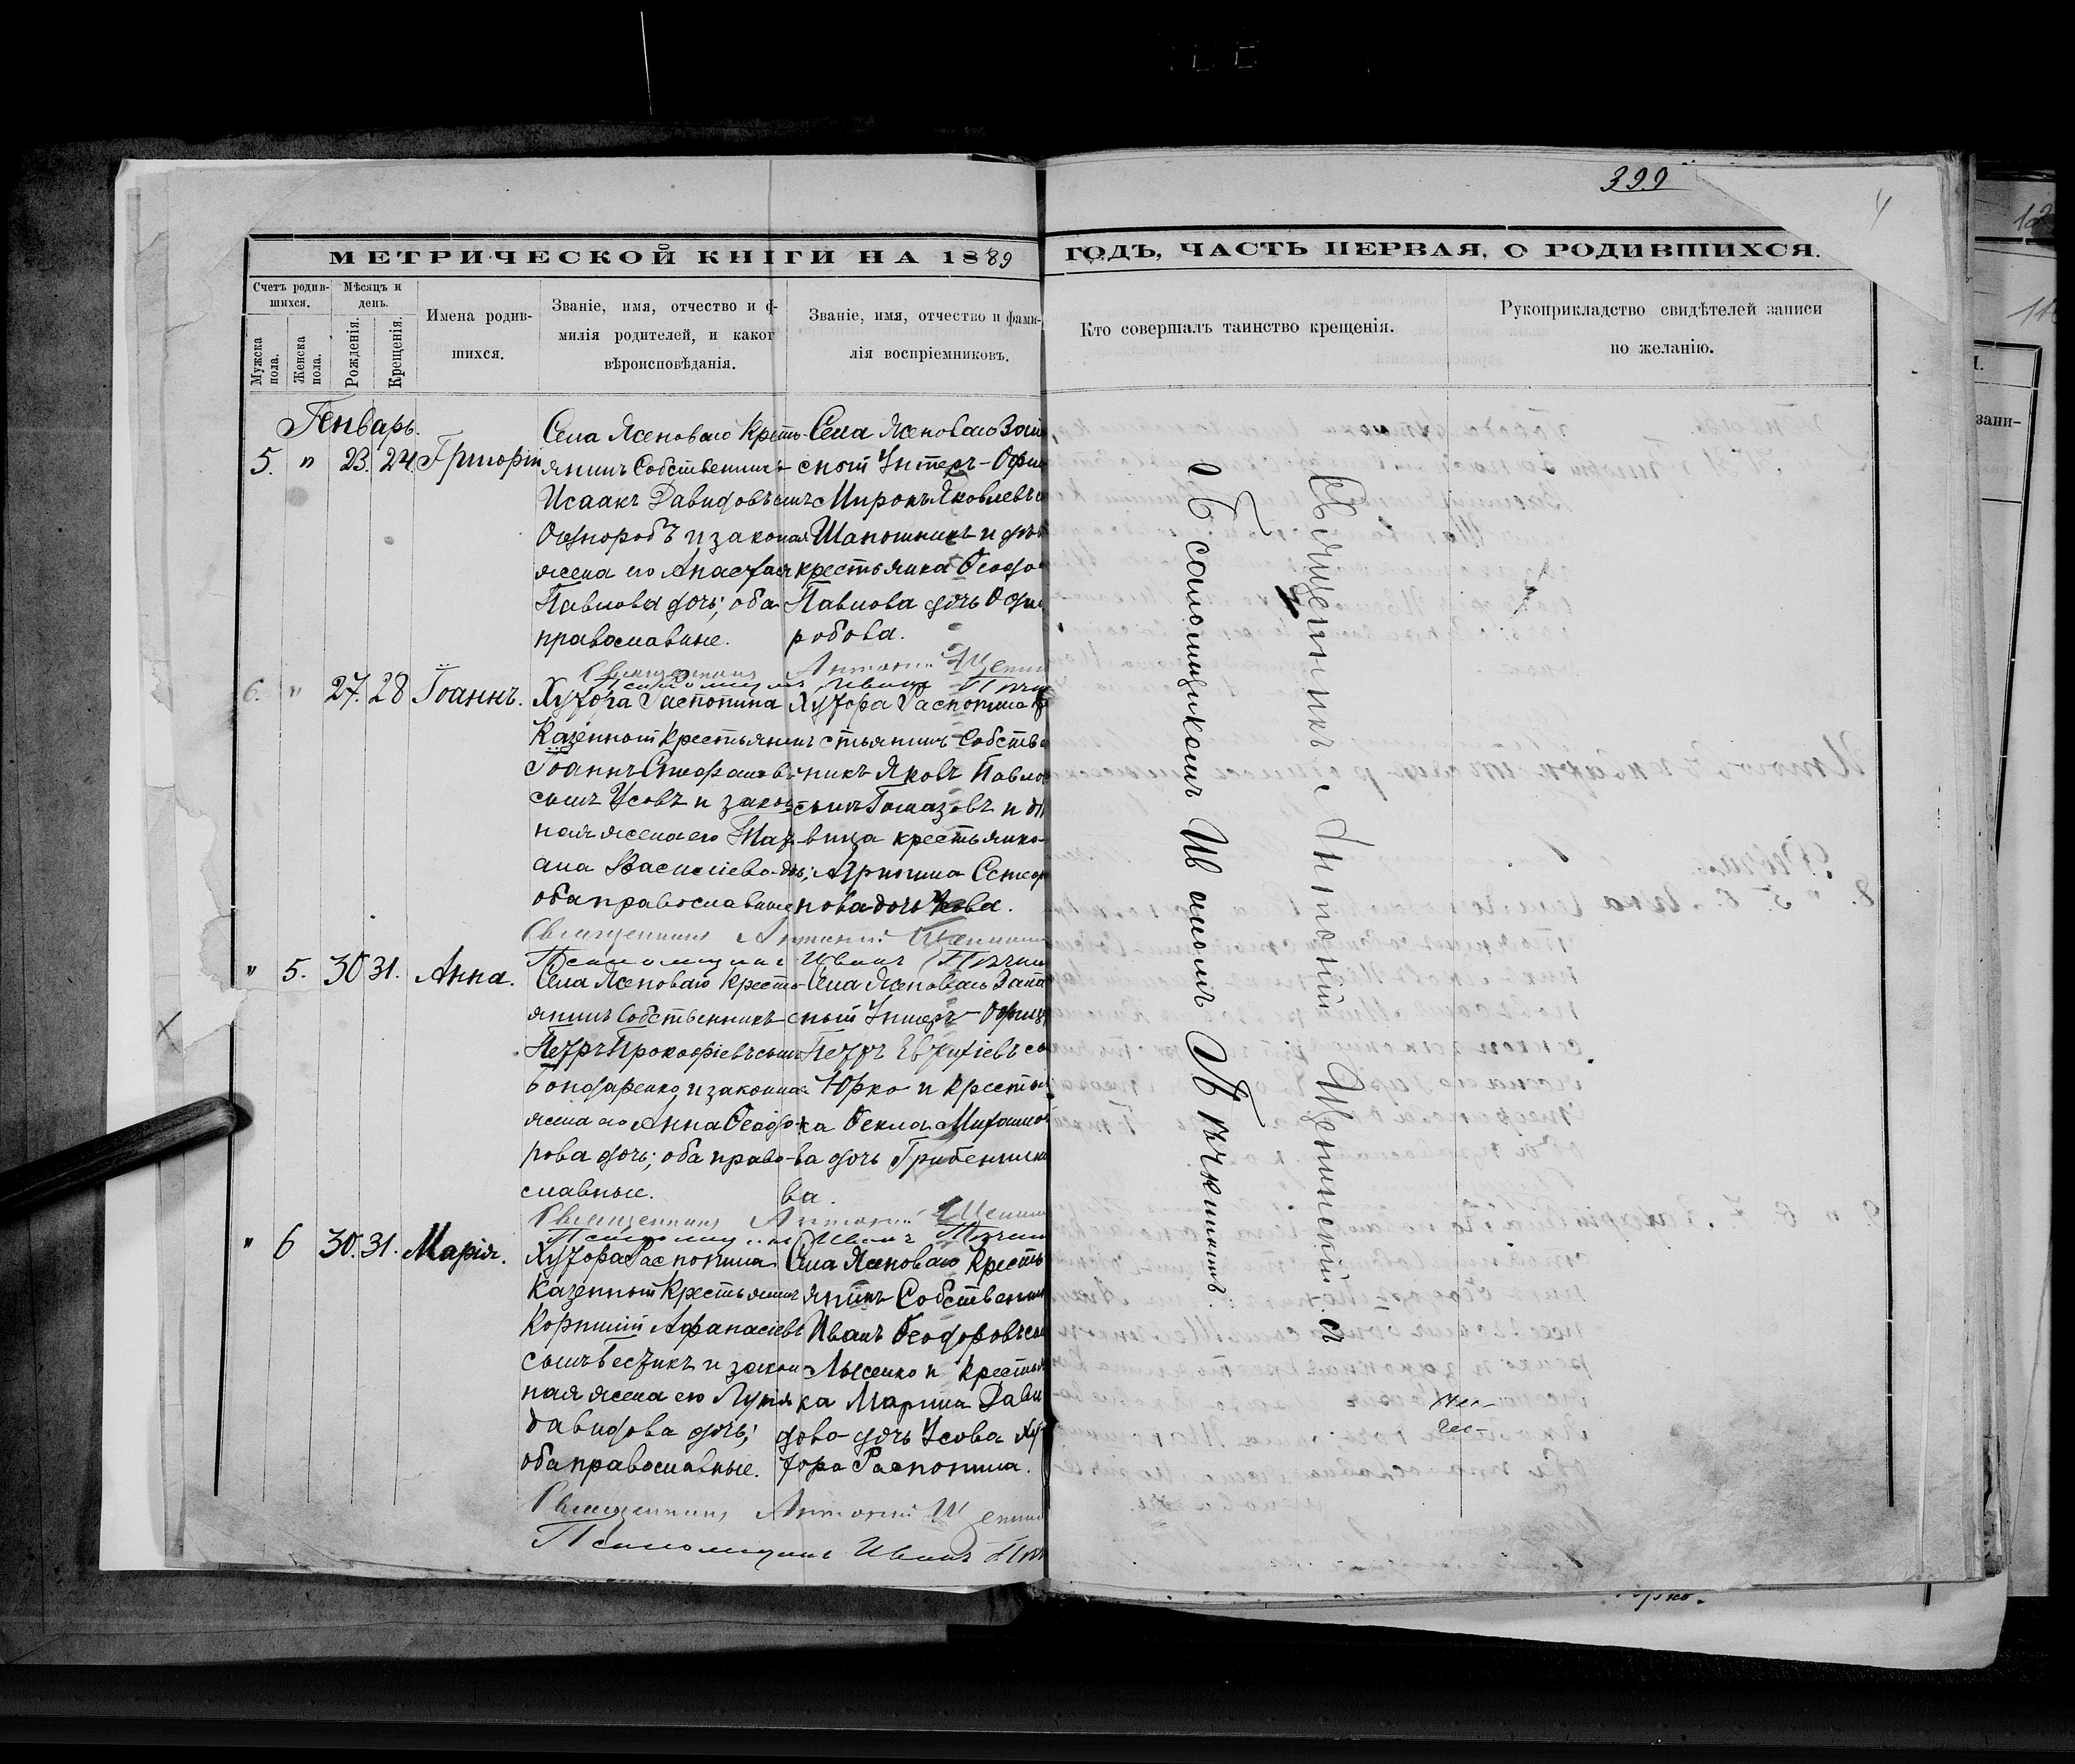 399
МЕТРИЧЕСКОЙ КНИГИ НА 1889 ГОДЪ, ЧАСТЬ ПЕРВАЯ, О РОДИВШИХСЯ.
Счетъ родив-
шихся.
Мужска
пола.
Женска
пола.
Мѣсяцъ и
день.
Рожденія.
Крещенія.
Имена родив-
шихся.
Званіе, имя, отчество и ф-
милія родителей, и каког
вѣроисповѣданія.
Званіе, имя, отчество и фами-
лія воспріемниковъ.
Кто совершалъ таинство крещенія.
Рукоприкладство свидѣтелей записи
по желанію.
Генварь.
5. " 23. 24. Григорій
Села Ясеноваго Кресть-
янинъ Собственникъ
Исаакъ Давидовъ сынъ
Однородъ и законая
жена его Анастасія
Павлова дочь; оба
православные.
Села Ясеноваго Запа
сной Унтеръ-Офи
Миронъ Яковлевъ
Шапошникъ и
крестьянка Ѳеодо
Павлова дочь Одно
робова.
Священникъ Антоній Щепин
Псаломщикъ Иванъ
6. " 27. 28 Іоаннъ.
Хутора Распопина
Казенной Крестьянинъ
Іоаннъ Стефановъ
сынъ Усовъ и закон
ная жена его Тат
ана Василіева дочь;
оба православные
Хутора Распопина Кр
стьянинъ Собстве
никъ Яковъ Павло
сынъ и дѣ
вица крестьянка
Стеф
нова дочь Усова.
Священникъ Антоній Щепин
Псаломщикъ Иванъ
" 5. 30 31. Анна.
Села Ясеноваго Кресть-
янинъ Собственникъ
Петръ Прокофіевъ сынъ
Бондаренко и законная
жена его Анна Ѳеодо
рова дочь; оба право-
славные.
Села Ясеноваго Запа
сной Унтеръ-Офице
Петръ Евфиміевъ с
Юрко и Крестья
ка Ѳекла Михайло
ва дочь Гребеннико
ва.
Священникъ Антоній Щепин
Псаломщикъ Иванъ
" 6 30. 31. Марія.
Хутора Распопина
Казенной Крестьянинъ
Корнилій Афанасіевъ
сынъ и закон
ная жена его Лукія
Давидова дочь;
оба православные.
Села Ясеноваго Кресть
янинъ Собственни
Иванъ Ѳеодоровъ сы
Лысенко и Крестья
ка Марина Дави
дова дочь Усова Ху
тора Распопина.
Священникъ Антоній Щепин
Псаломщикъ Иванъ
Священникъ Антоній Щепинскій съ
псаломщикомъ Иваномъ